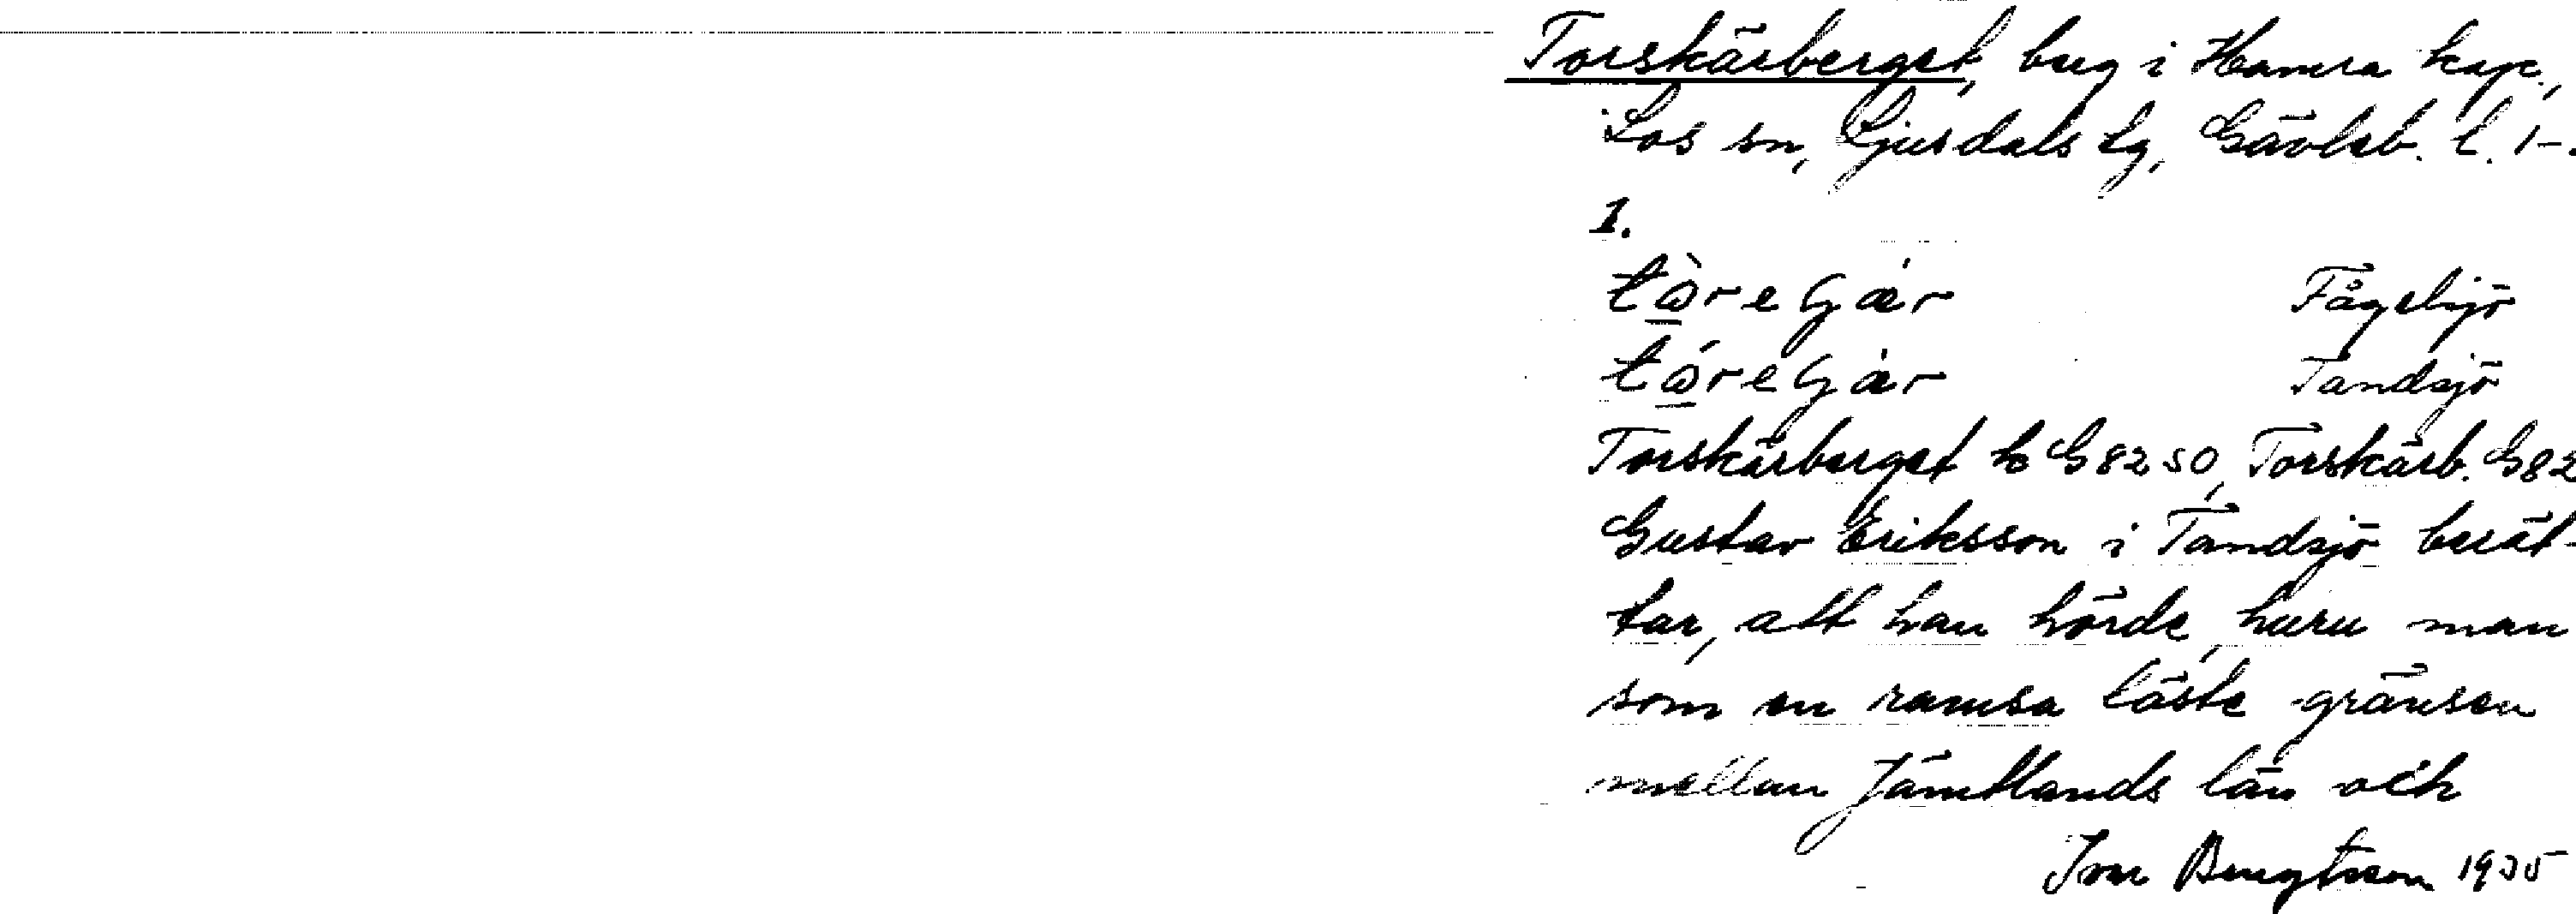 Torskärberget, berg i Hamra kap.,
Los sn, Ljusdals tg, Gävleb. l. 1-
1.
Fågelsjö
Tandsjö
Torskärberget G 8250, Torskärb. G 82
Gustav Eriksson i Tandsjö berät-
tar, att han hörde, huru man
som en ramsa läste gränsen
mellan Jämtlands län och
Ivar Bengtsson 1935